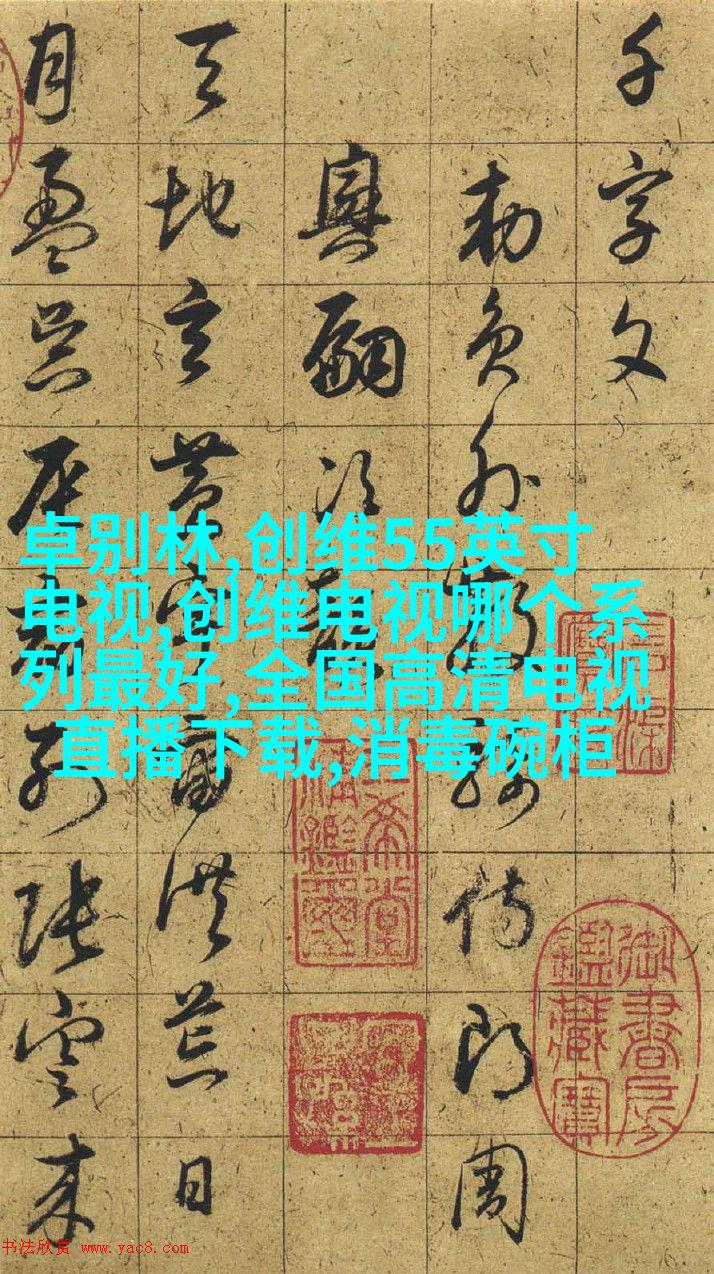 千字文
勅員外散騎侍郎周
興嗣次韻
天地玄黃宇宙洪荒日
月盈昃辰宿列張寒來
卓别林,创维55英寸
电视,创维电视哪个系
列最好,全国高清电视
直播下载,消毒碗柜
三希堂
精鑑璽
御書房
鑑藏寶
书法欣赏 www.yac8.com